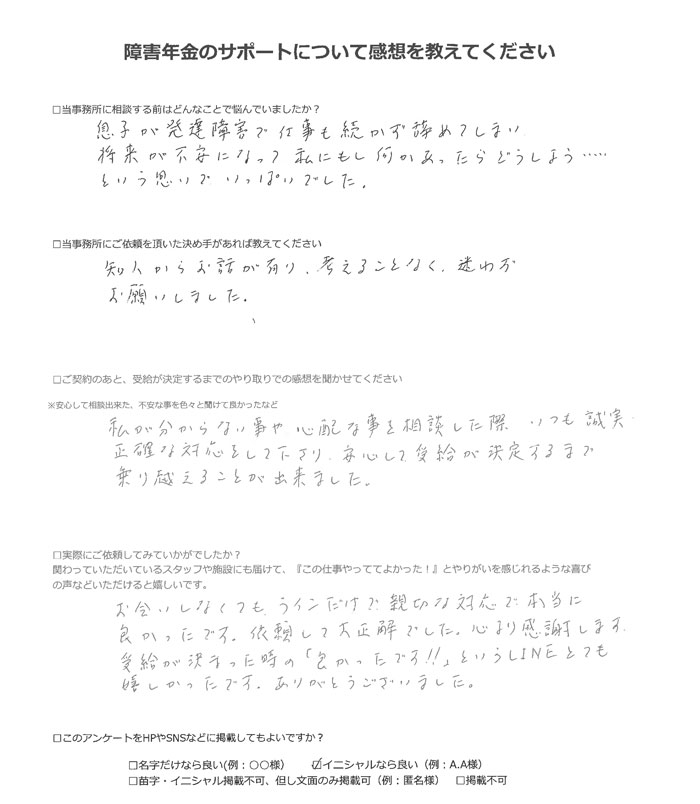 障害年金のサポートについて感想を教えてください
□当事務所に相談する前はどんなことで悩んでいましたか？
息子が発達障害で仕事も続かず辞めてしまい
将来が不安になって私にもし何かあったらどうしよう……
という思いでいっぱいでした。
□当事務所にご依頼を頂いた決め手があれば教えてください
知人からお話が有り、考えることなく、迷わず
お願いしました。
□ご契約のあと、受給が決定するまでのやり取りでの感想を聞かせてください
※安心して相談出来た、不安な事を色々と聞けて良かったなど
私が分からない事や心配な事を相談した際、いつも誠実
正確な対応をして下さり、安心して受給が決定するまで
乗り越えることが出来ました。
□実際にご依頼してみていかがでしたか？
関わっていただいているスタッフや施設にも届けて、『この仕事やっててよかった！』とやりがいを感じれるような喜び
の声などいただけると嬉しいです。
お会いしなくてもラインだけで親切な対応で本当に
良かったです。依頼して大正解でした。心より感謝します。
受給が決まった時の「良かったです!!」というLINEとても
嬉しかったです。ありがとうございました。
□このアンケートをHPやSNSなどに掲載してもよいですか？
□名字だけなら良い(例：〇〇様） ☑イニシャルなら良い（例：A.A様）
□苗字・イニシャル掲載不可、但し文面のみ掲載可（例：匿名様） □掲載不可